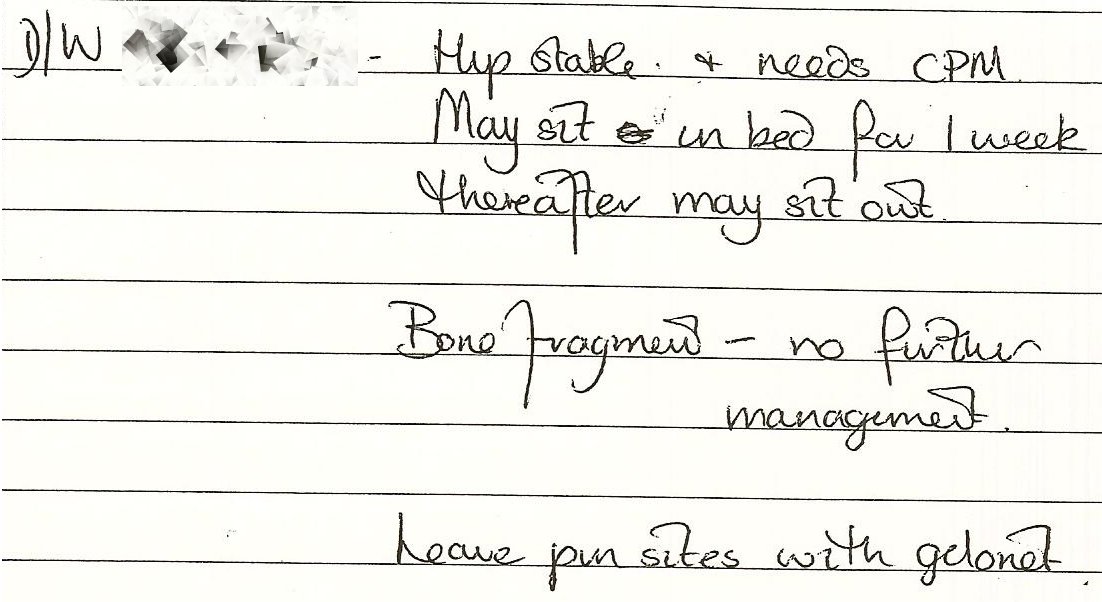 D/W - Hip stable. + needs CPM
May sit in bed for 1 week
+ thereafter may sit out.
Bone fragment - no further
management.
Leave pin sites with gelonet.